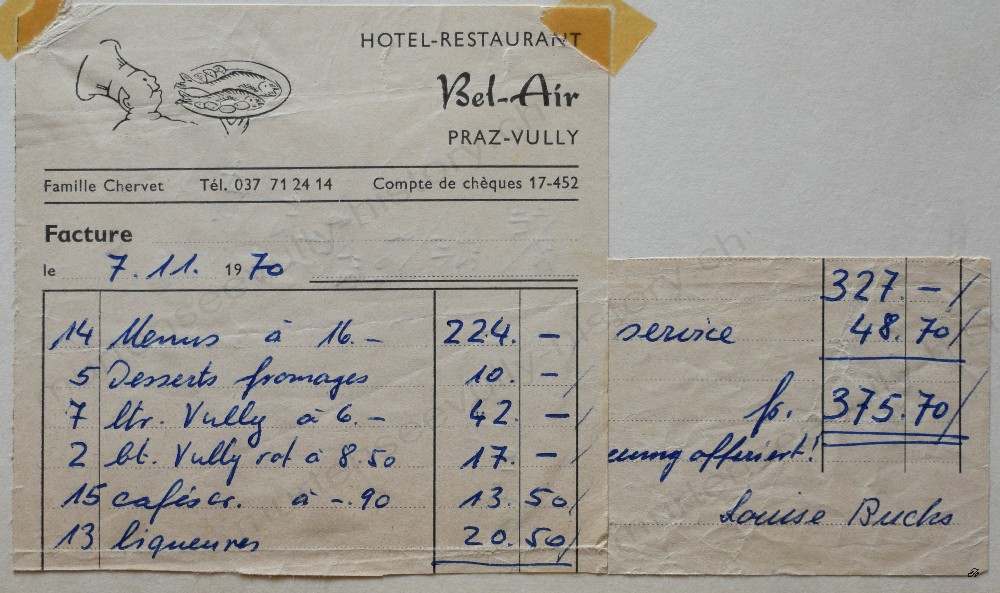 HOTEL-RESTAURANT
Bel-Air
PRAZ-VULLY
Famille Chervet Tél. 037 71 24 14 Compte de chèques 17-452
Facture
le 7. 11. 1970
14 Menus à 16.– 224. –
5 Desserts fromages 10. –
7 ltr. Vully à 6.– 42. –
2 bt. Vully rot à 8.50 17. –
15 cafés cr. à –.90 13. 50
13 liqueures 20. 50
327. –
service 48. 70
fr. 375. 70
offeriert!
Louise Bucks